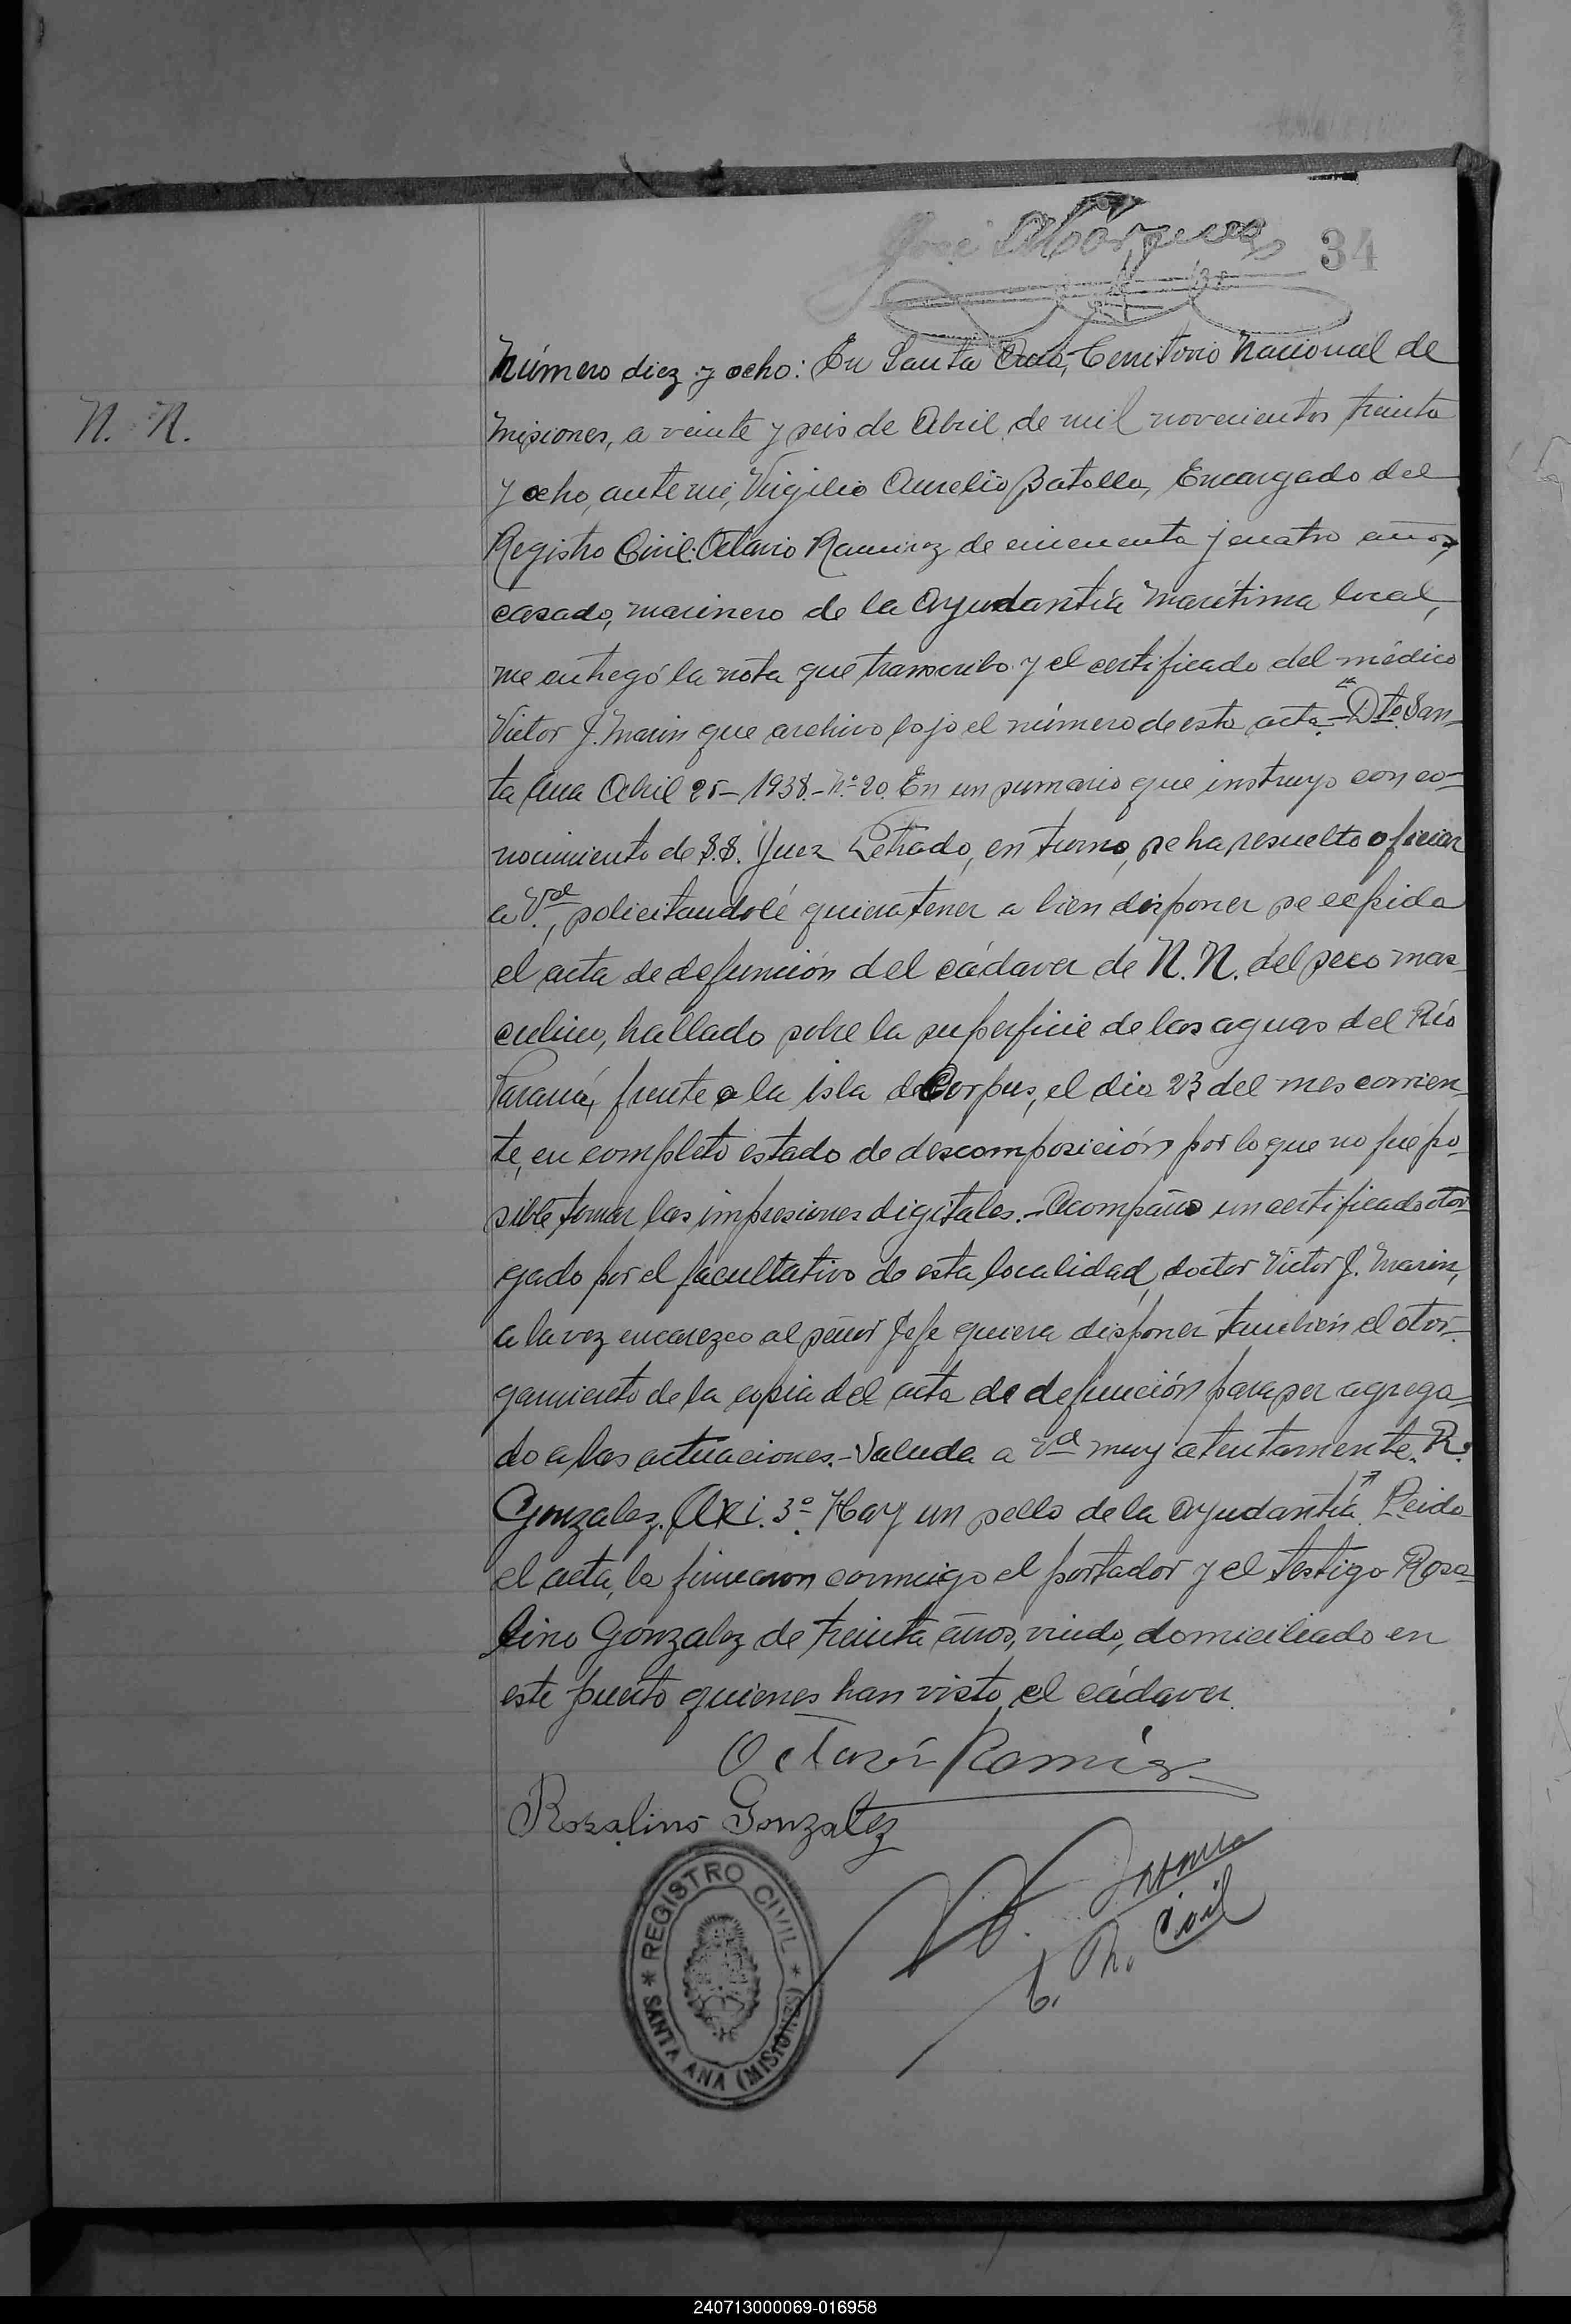 34
N. N.
Número diez y ocho: En Santa Ana, Territorio Nacional de
Misiones, a veinte y seis de Abril de mil novecientos treinta
y ocho, ante mi, Virgilio Aurelio Batalla, Encargado del
Registro Civil: Octavio Ramirez de cincuenta y cuatro años,
casado, marinero de la Ayudantía Marítima local,
me entregó la nota que transcribo y el certificado del médico
Victor J. Marin que archivo bajo el número de esta acta.- "Dto. San-
ta Ana Abril 25- 1938.- N.º 20. En un sumario que instruyo con co-
nocimiento de S.S. Juez Letrado, en turno, se ha resuelto oficiar
a Vd., solicitandolé quiera tener a bien disponer se expida
el acta de defunción del cádaver de N. N. del sexo mas-
culino, hallado sobre la superficie de las aguas del Río
Paraná, frente a la isla de Corpus, el dia 23 del mes corrien-
te, en completo estado de descomposición por lo que no fue po-
sible tomar las impresiones digitales.- Acompaño un certificado otor-
gado por el facultativo de esta localidad, doctor Victor J. Marin,
a la vez encarezco al señor Jefe quiera disponer también el otor-
gamiento de la copia del acta de defunción para ser agrega-
do a las actuaciones.- Saluda a Vd muy atentamente. R.
Gonzalez. Axi. 3º. Hay un sello de la Ayudantía". Leida
el acta, la firmaron conmigo el portador y el testigo Rosa-
lino Gonzalez de treinta años, viudo, domiciliado en
este puerto quienes han visto el cádaver.
Octavio Ramirez
Rosalino Gonzalez
E. R. Civil
* REGISTRO CIVIL *
SANTA ANA (MISIONES)
240713000069-016958